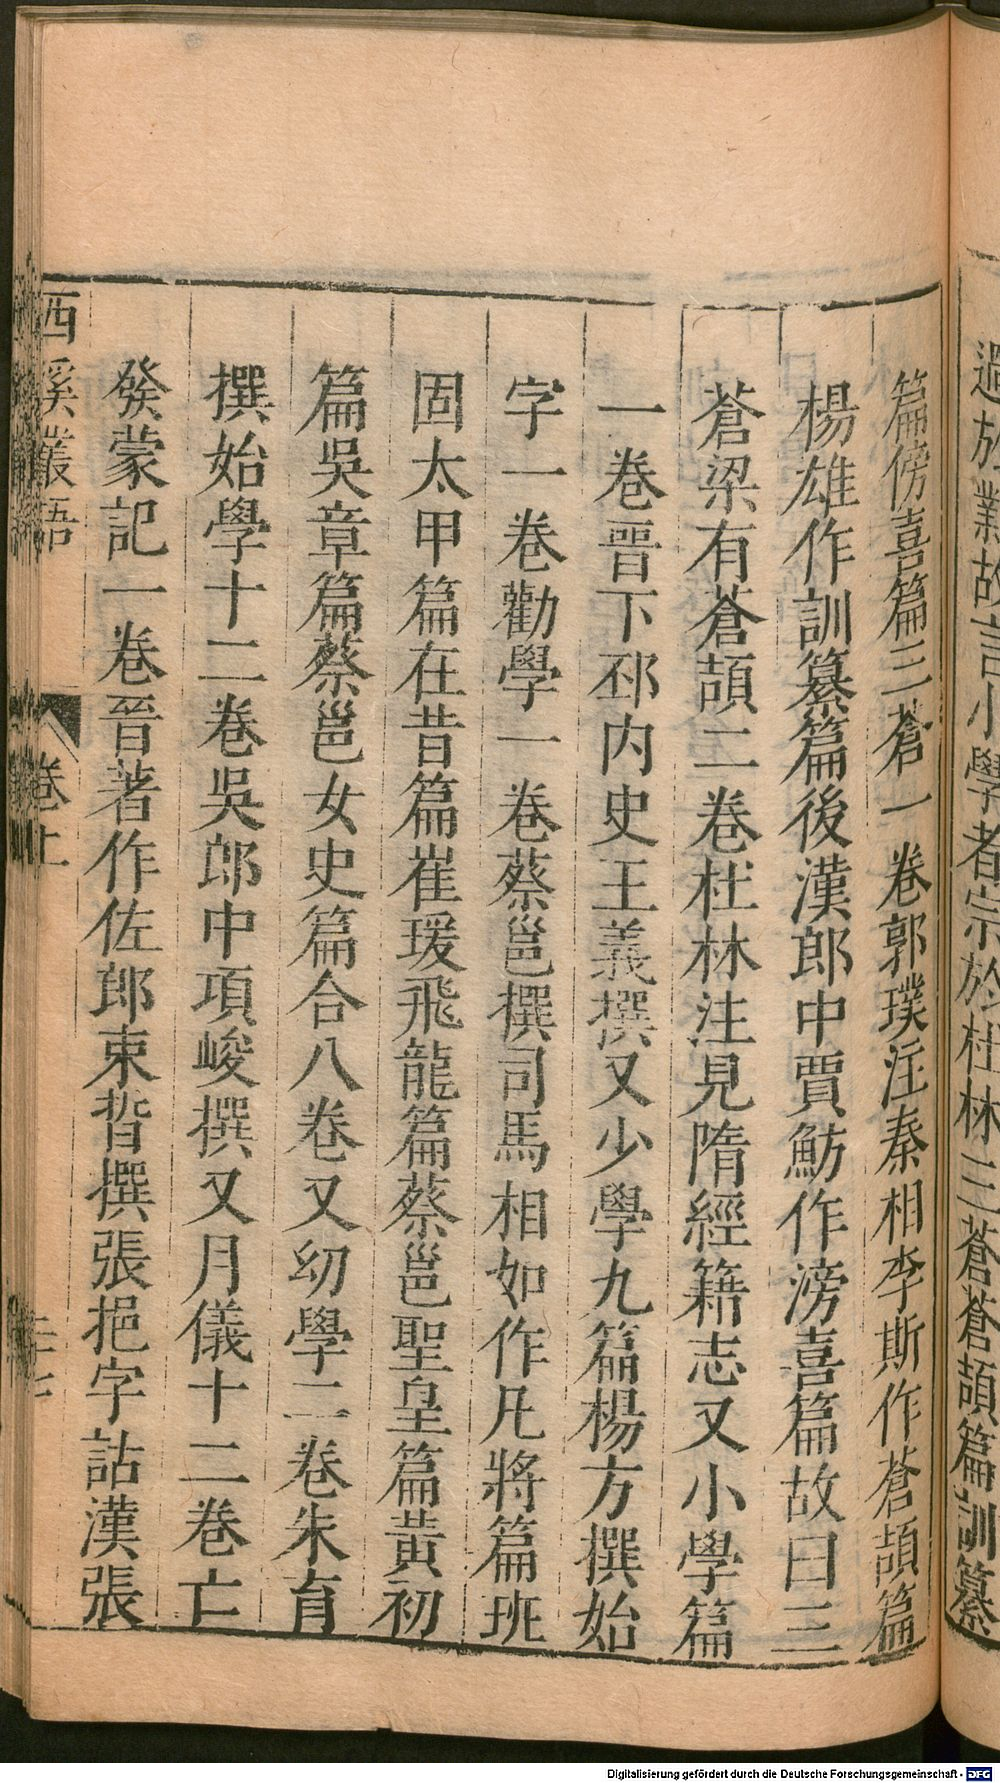 過於業故言小學者宗於杜林三蒼蒼頡篇訓纂
篇傍喜篇三蒼一卷郭璞注秦相李斯作蒼頡篇
楊雄作訓纂篇後漢郎中賈魴作滂喜篇故曰三
蒼梁有蒼頡二卷杜林注見隋經籍志又小學篇
一卷晉下邳内史王義撰又少學九篇楊方撰始
字一卷勸學一卷蔡邕撰司馬相如作凡將篇班
固太甲篇在昔篇崔瑗飛龍篇蔡邕聖皇篇黄初
篇吳章篇蔡邕女史篇合八卷又幼學二卷朱育
撰始學十二卷吳郎中項峻撰又月儀十二卷亡
發蒙記一卷晉著作佐郎束晳撰張挹字詁漢張
西溪叢語 卷上
Digitalisierung gefördert durch die Deutsche Forschungsgemeinschaft - DFG